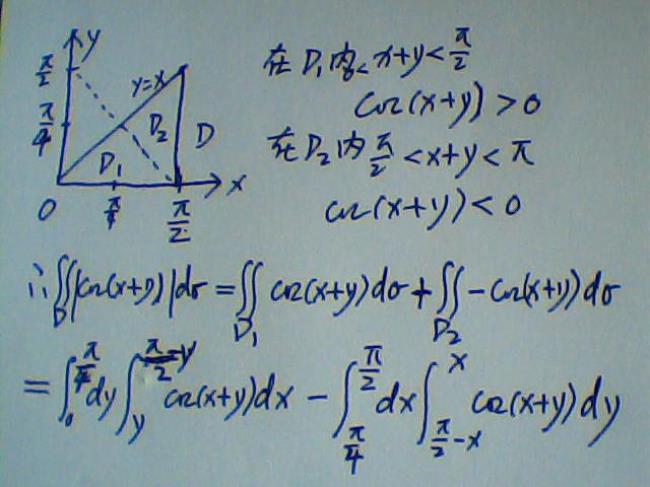 y
π/2
y=x
π/4
D₂
D
D₁
O
π/4
π/2
x
在D₁内0<x+y<π/2
cos(x+y)>0
在D₂内π/2<x+y<π
cos(x+y)<0
∴∬_D|cos(x+y)|dσ=∬_D₁ cos(x+y)dσ+∬_D₂ -cos(x+y)dσ
=∫_0^(π/4) dy∫_y^(π/2-y) cos(x+y)dx-∫_(π/4)^(π/2) dx∫_(π/2-x)^x cos(x+y)dy